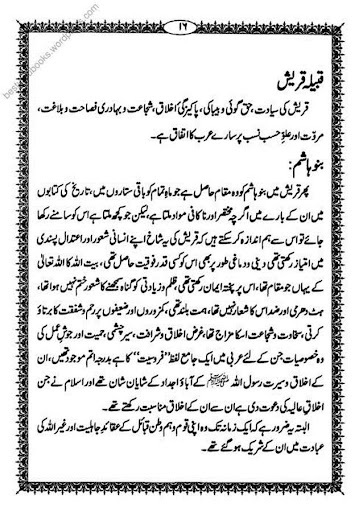 ۱۶
قبیلہ قریش
قریش کی سیادت، حق گوئی و بیباکی، پاکیزگی اخلاق، شجاعت و بہادری فصاحت و بلاغت،
مروّت اور علوِّ حسب نسب پر سارے عرب کا اتفاق ہے۔
بنو ہاشم:
پھر قریش میں بنو ہاشم کو وہ مقام حاصل ہے جو ماہِ تمام کو باقی ستاروں میں، تاریخ کی کتابوں
میں ان کے بارے میں اگرچہ مختصر اور ناکافی مواد ملتا ہے، لیکن جو کچھ ملتا ہے اس کو سامنے رکھا
جائے تو اس سے ہم اندازہ کر سکتے ہیں کہ قریش کی یہ شاخ اپنے انسانی شعور اور اعتدال پسندی
میں امتیاز رکھتی تھی، دینی و دماغی طور پر بھی اس کو کسی قدر فوقیت حاصل تھی، بیت اللہ کا اللہ تعالیٰ
کے یہاں جو مقام تھا، اس پر پختہ ایمان رکھتی تھی، ظلم و زیادتی کو گناہ سمجھنے کا شعور ختم نہیں ہوا تھا،
ہٹ دھرمی اور ضد اس کا شعار نہیں تھا، ہمت بلند تھی، کمزوروں اور ضعیفوں پر رحم و شفقت کا برتاؤ
کرتی، سخاوت و شجاعت اس کا مزاج تھا، غرض اخلاق و شرافت، سیر چشمی، حمیت اور جوش عمل کی
وہ خصوصیات جن کے لئے عربی میں ایک جامع لفظ "فروسیت" کا ہے بدرجہ اتم موجود تھیں، ان
کے اخلاق و سیرت رسول اللہ ﷺ کے آباؤ اجداد کے شایان شان تھے اور اسلام نے جن
اخلاقِ عالیہ کی دعوت دی ہے ان سے ان کے اخلاق مناسبت رکھتے تھے۔
البتہ یہ ضرور ہے کہ ایک زمانہ تک وہ اپنی قوم و ہم وطن قبائل کے عقائدِ جاہلیت اور غیر اللہ کی
عبادت میں ان کے شریک ہو گئے تھے۔